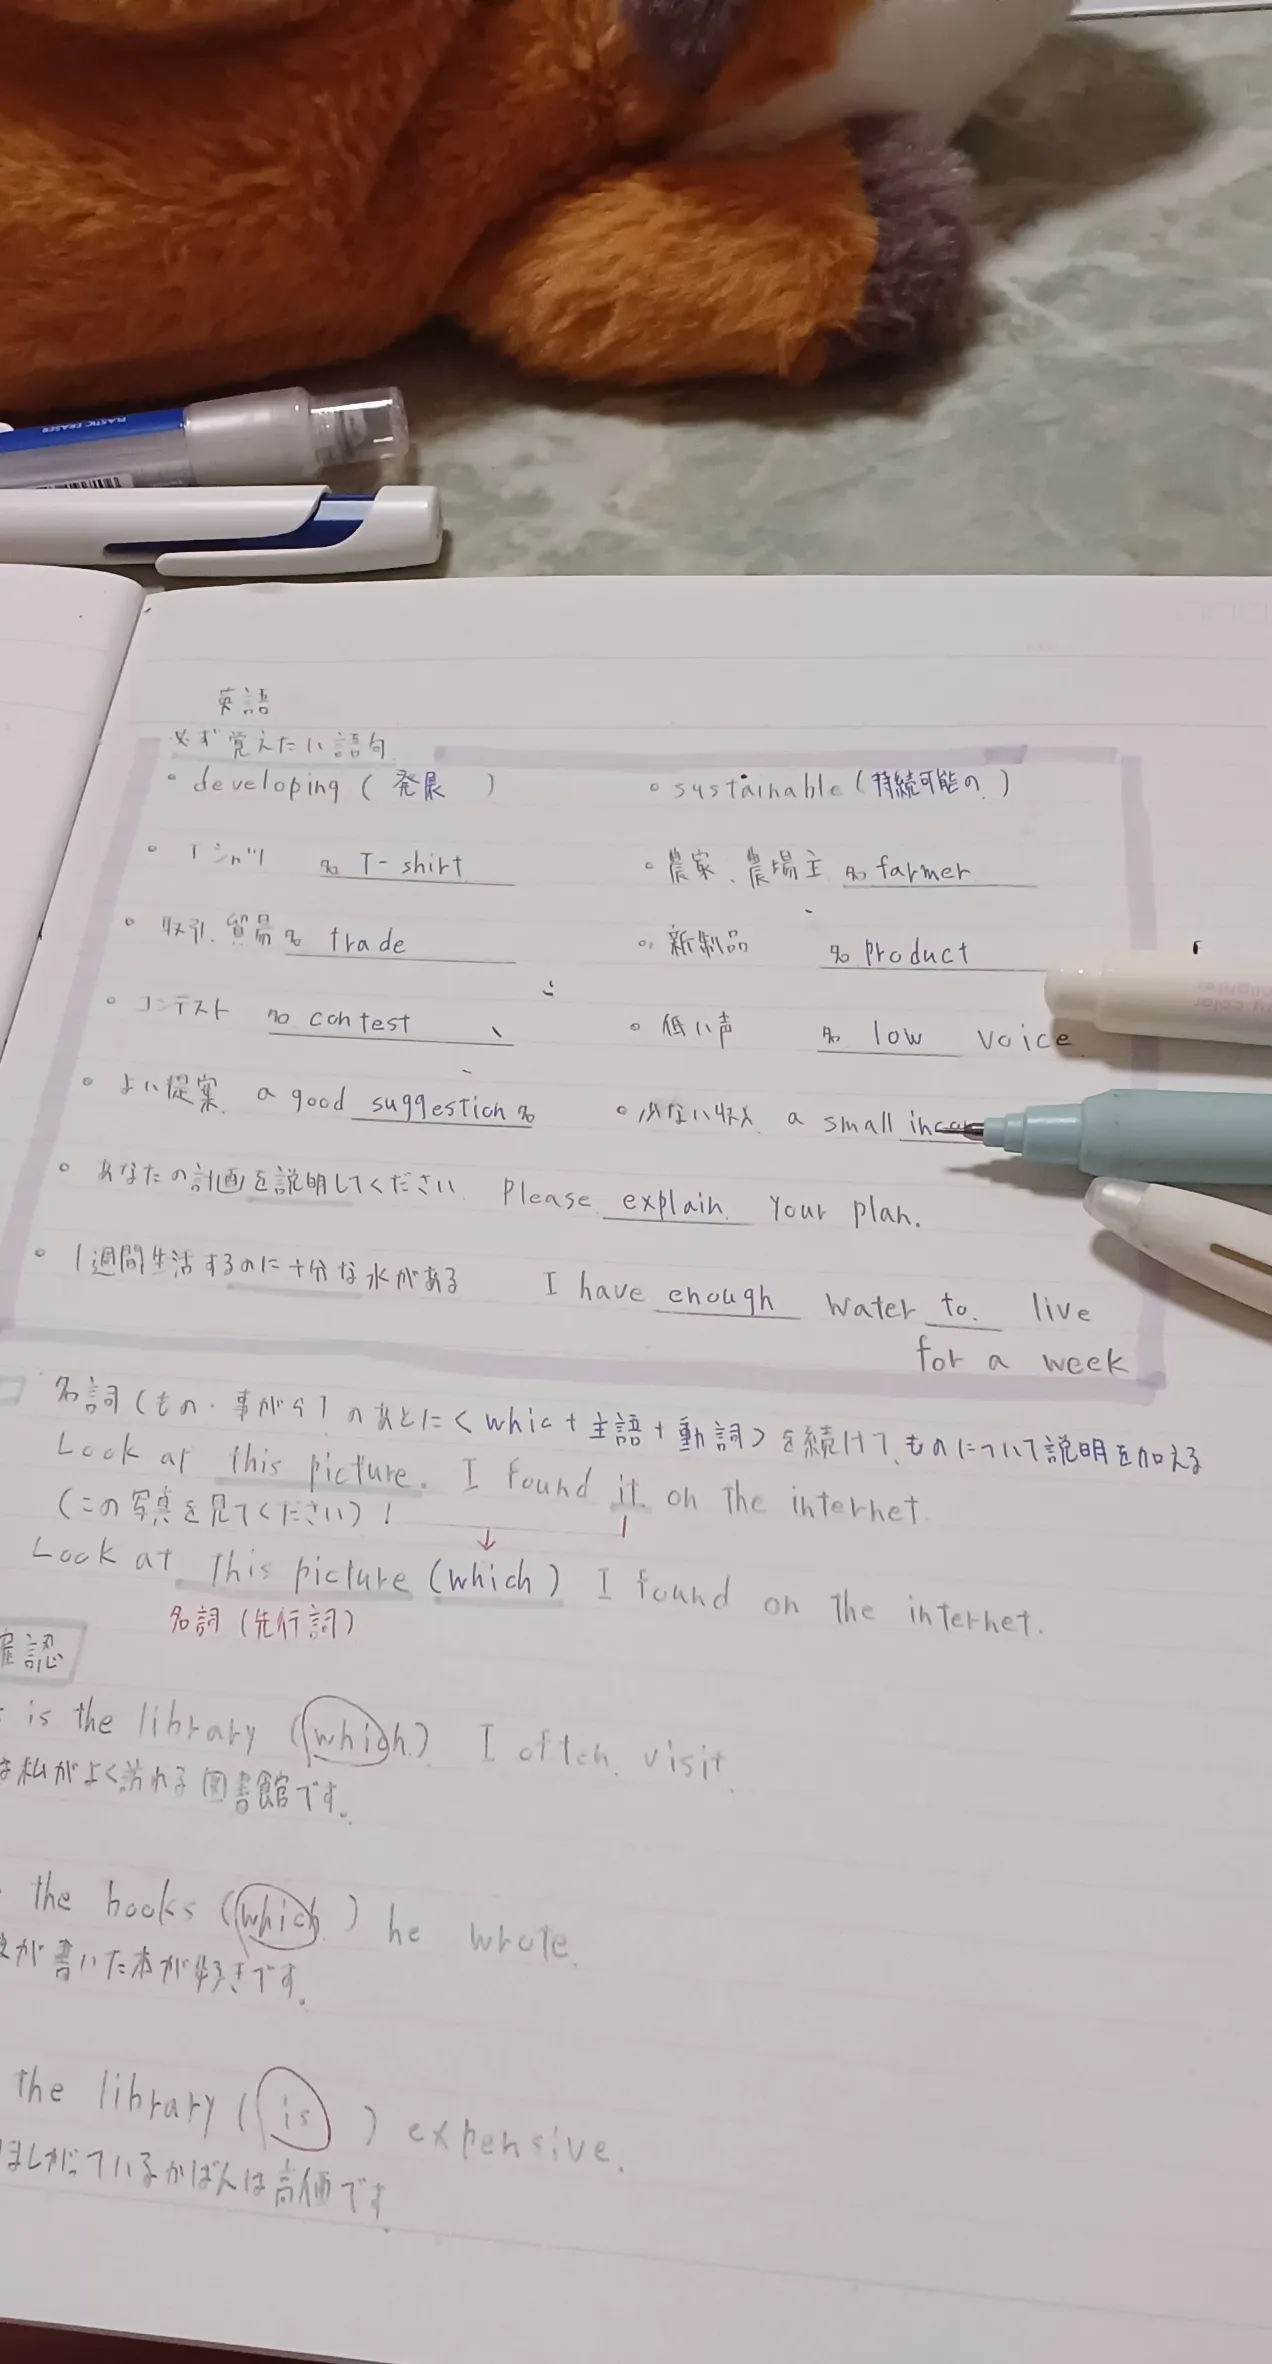 PLASTIC ERASER
英語
必ず覚えたい語句
・developing (発展 )
・sustainable (持続可能の)
・Tシャツ T-shirt
・農家、農場主 farmer
・取引、貿易 trade
・新製品 product
・コンテスト contest
・低い声 low voice
・よい提案 a good suggestion
・少ない収入 a small
・あなたの計画を説明してください Please explain your plan.
・1週間生活するのに十分な水がある I have enough water to live
for a week
名詞(もの・事がら)のあとに<whic+主語+動詞>を続けて、ものについて説明を加える
Look at this picture. I found it on the internet.
(この写真を見てください)!
Look at this picture (which) I found on the internet.
名詞(先行詞)
確認
is the library (which) I often visit.
は私がよく訪れる図書館です。
the books (which) he wrote.
が書いた本が好きです。
the library (is) expensive.
ほしがっているかばんは高価です